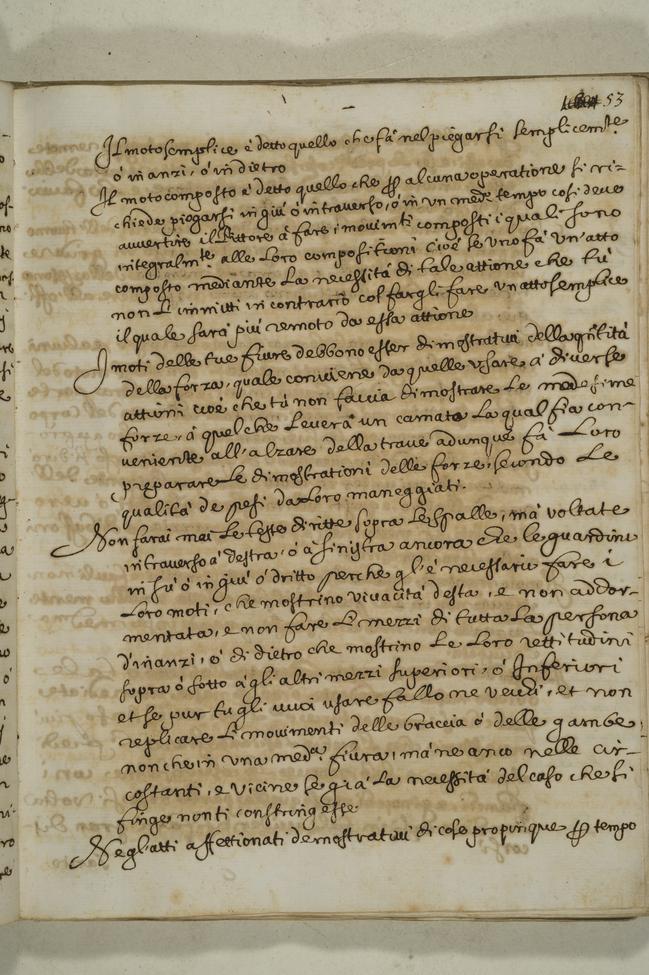 53
Il moto semplice è detto quello che fà nel piegarsi semplicemte.
ò inanzi, ò indietro
Il moto composto è detto quello che ꝑ alcuna operatione si ri-
chiede piegarsi in giù ò intraverso, ò in un medo. tempo cosi deve
avvertire il Pittore à fare, i movinti composti i quali sono
integralmte. alle Loro compositioni cioè se uno fà un'atto
composto mediante La necessità di tale attione che tù
non L'immitti in contrario col fargli fare un atto semplice
il quale sarà più remoto da essa attione
I moti delle tue fiure debbono esser dimostrativi della qntità
della forza, quale conviene da quelle usare à diverse
attioni cioè che tù non faccia dimostrare Le medesime
forze, à quel che Leverà un camato La qual sia con-
veniente all'alzare della trave adunque fà Loro
preparare Le dimostrationi delle forze, secondo Le
qualità de pesi da Loro maneggiati.
Non farai mai Le teste diritte sopra Le spalle, mà voltate
intraverso à destra, ò à sinistra ancora che le guardino
in sù ò in giù ò dritto perche gl'è necessario fare i
Loro moti, che mostrino vivacità desta, e non addor-
mentata, e non fare Li mezzi di tutta La persona
d'inanzi, ò di dietro che mostrino Le Loro rettitudini
sopra ò sotto à gli altri mezzi superiori, ò Inferiori
et se pur tu gli vuoi usare fallo ne vecchi, et non
replicare Li movimenti delle braccia ò delle gambe
non che in una meda. fiura, mà ne anco nelle cir-
costanti, e vicine se già La necessità del caso che si
finge non ti constringesse
Negl'atti affettionati demostrativi di cose propinque ꝑ tempo